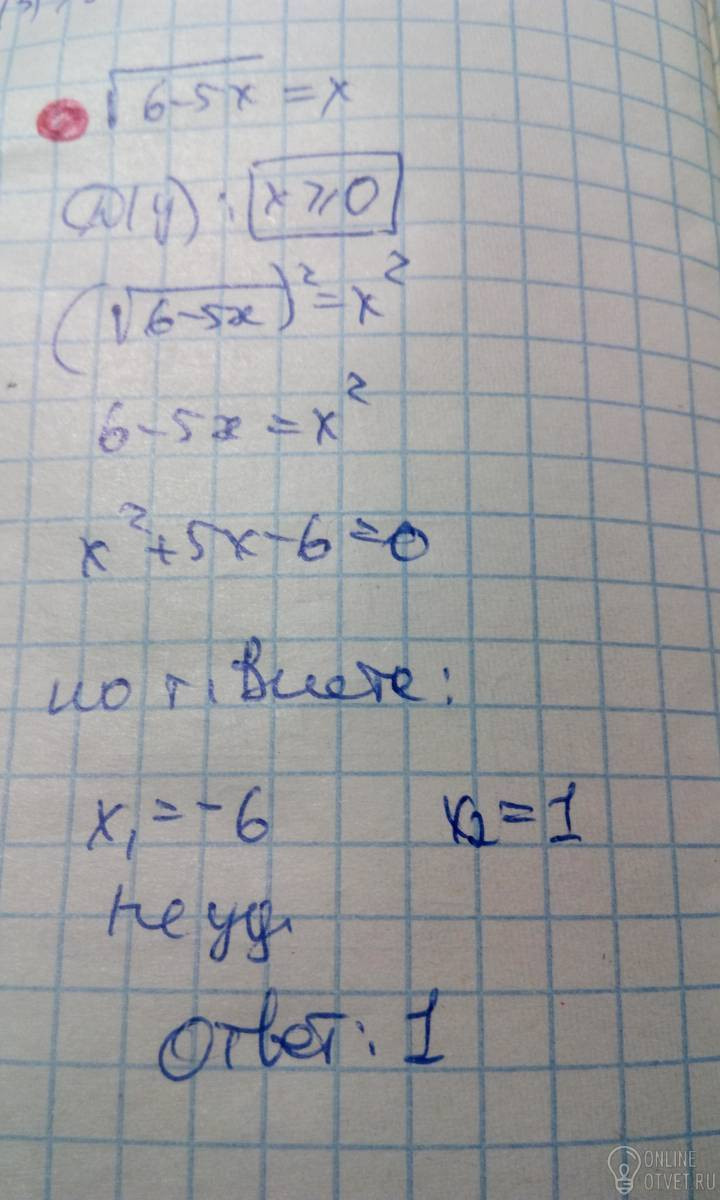 √6-5x = x
D(y): x ⩾ 0
(√6-5x)² = x²
6-5x = x²
x²+5x-6=0
по т. Виета:
x₁ = -6 x₂ = 1
не уд.
Ответ: 1
ONLINE
OTVET.RU